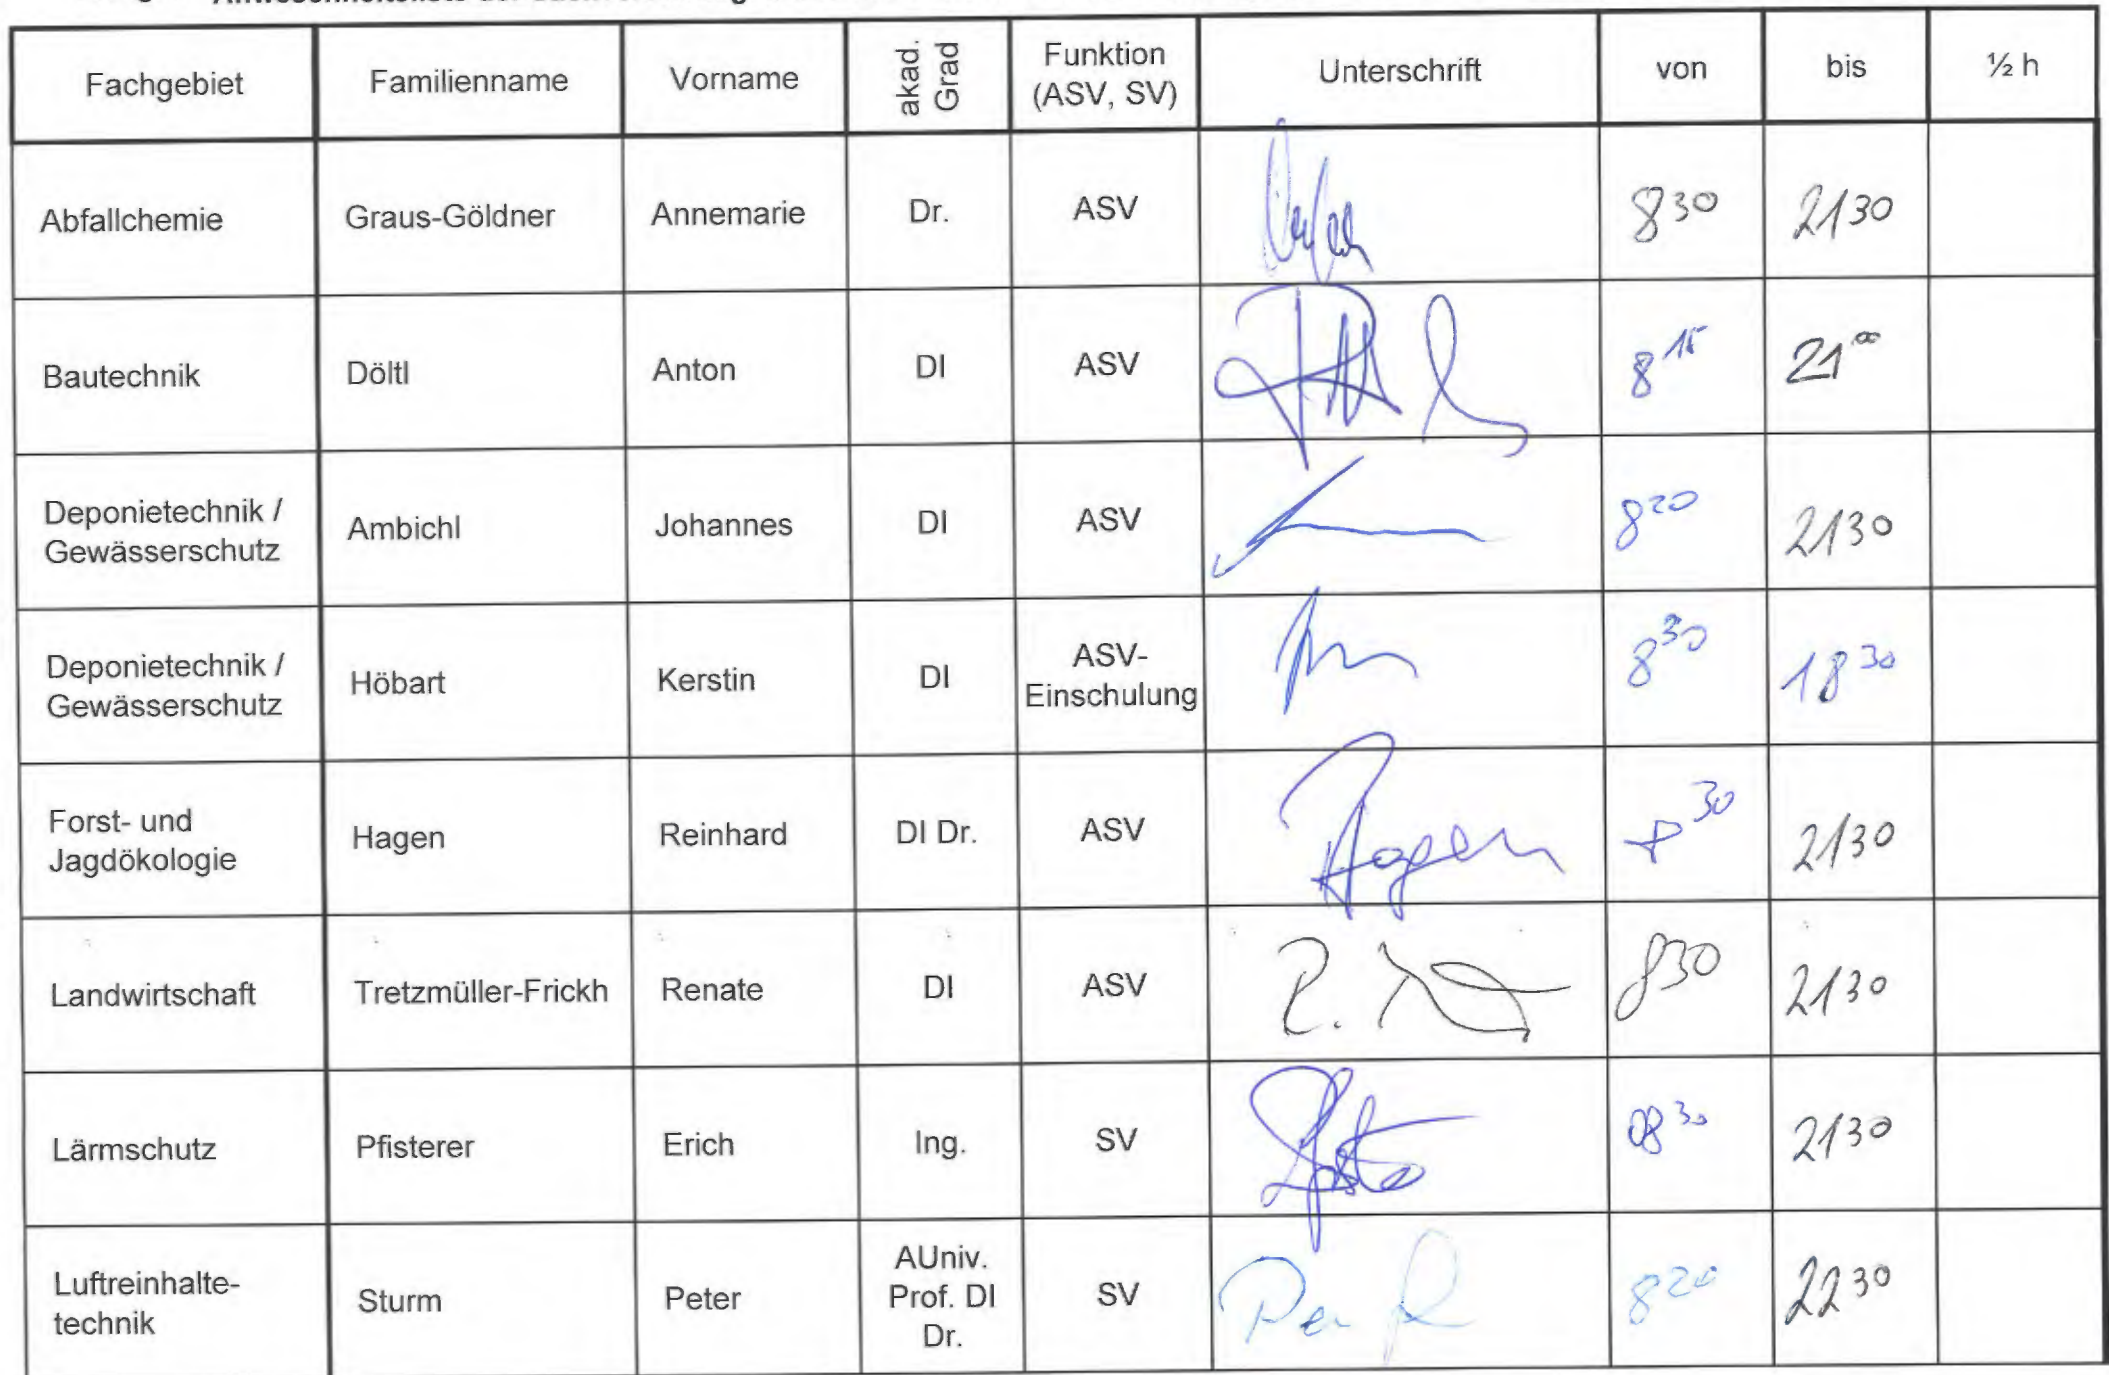 Anwesenheitsliste der
Fachgebiet Familienname Vorname akad. Grad Funktion (ASV, SV) Unterschrift von bis ½ h
Abfallchemie Graus-Göldner Annemarie Dr. ASV 8 30 21 30
Bautechnik Döltl Anton DI ASV 8 15 21 00
Deponietechnik / Gewässerschutz Ambichl Johannes DI ASV 8 20 21 30
Deponietechnik / Gewässerschutz Höbart Kerstin DI ASV-Einschulung 8 30 18 30
Forst- und Jagdökologie Hagen Reinhard DI Dr. ASV Hagen 8 30 21 30
Landwirtschaft Tretzmüller-Frickh Renate DI ASV R. 8 30 21 30
Lärmschutz Pfisterer Erich Ing. SV 08 30 21 30
Luftreinhalte-technik Sturm Peter AUniv. Prof. DI Dr. SV 8 20 22 30